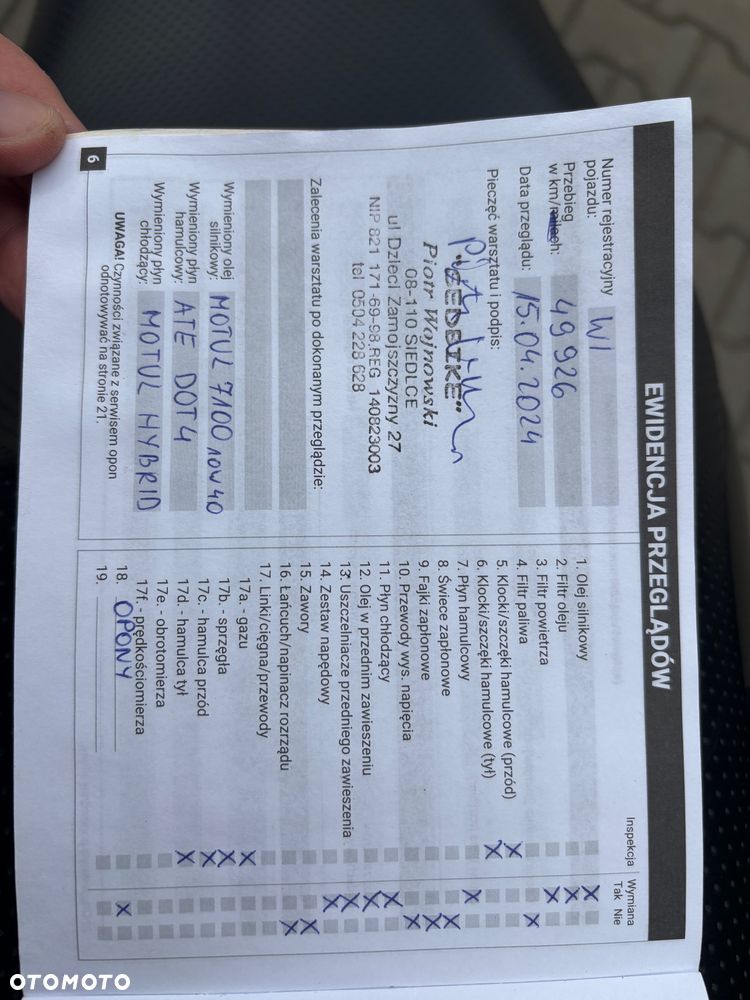 EWIDENCJA PRZEGLĄDÓW
Numer rejestracyjny
pojazdu: WI
Przebieg
w km/milach: 49926
Data przeglądu: 15.04.2024
Pieczęć warsztatu i podpis:
Piotr Wojnowski
08-110 SIEDLCE
ul Dzieci Zamojszczyzny 27
NIP 821 171-69-98, REG. 140823003
tel. 0504 228 628
Zalecenia warsztatu po dokonanym przeglądzie:
Wymieniony olej
silnikowy: MOTUL 7100 10W40
Wymieniony płyn
hamulcowy: ATE DOT4
Wymieniony płyn
chłodzący: MOTUL HYBRID
UWAGA! Czynności związane z serwisem opon
odnotowywać na stronie 21.
6
Inspekcja Wymiana
Tak Nie
1. Olej silnikowy X
2. Filtr oleju X
3. Filtr powietrza X
4. Filtr paliwa X
5. Klocki/szczęki hamulcowe (przód) X
6. Klocki/szczęki hamulcowe (tył) X
7. Płyn hamulcowy X
8. Świece zapłonowe X
9. Fajki zapłonowe X
10. Przewody wys. napięcia X
11. Płyn chłodzący X
12. Olej w przednim zawieszeniu X
13. Uszczelniacze przedniego zawieszenia X
14. Zestaw napędowy X
15. Zawory X
16. Łańcuch/napinacz rozrządu X
17. Linki/cięgna/przewody
17a. - gazu X
17b. - sprzęgła X
17c. - hamulca przód X
17d. - hamulca tył X
17e. - obrotomierza
17f. - prędkościomierza
18. OPONY X
19.
OTOMOTO